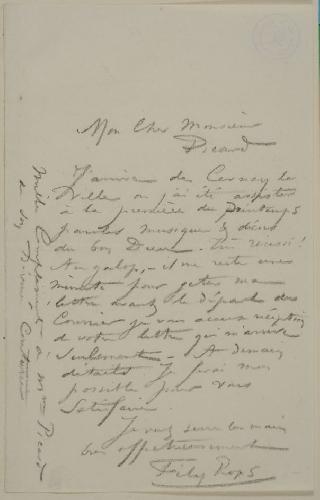 Mon Cher Monsieur
Picard
J'arrive de Cernay la
Ville où j'ai été assister
à la première du Printemps
paroles musique & décors
du bon Dieu. Très réussi!
Au galop, – il me reste une
minute pour jeter ma
lettre avant le départ du
Courrier je vous accuse réception
de votre lettre qui m'arrive
Seulement – A demain
détails Je ferai mon
possible pour vous
Satisfaire.
Je vous serre la main
bien affectueusement
Félicien Rops
Mille Compliments à Mme Picard